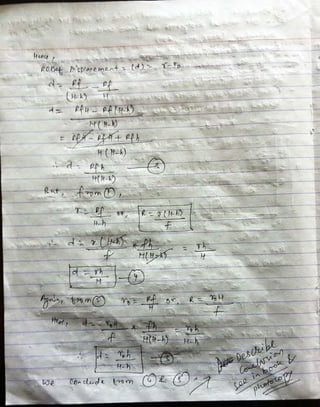 Hence,
Relief Displacement = (d) = r - r₀
d = Rf/(H-h) - Rf/H
d = RfH - Rf(H-h) / H(H-h)
= RfH - RfH + Rfh / H(H-h)
∴ d = Rfh / H(H-h) — (3)
But, from (1),
r = Rf/H-h or, R = r(H-h)/f
∴ d = r(H-h)/f × fh/H(H-h) = rh/H
d = rh/H — (4)
Again, from (2) r₀ = Rf/H or, R = r₀H/f
Now, d = r₀H/f × fh/H(H-h) = r₀h/H-h
∴ d = r₀h/H-h — (5)
We conclude from (4) & (5) →
Describe
conclusion
see in book &
photocopy